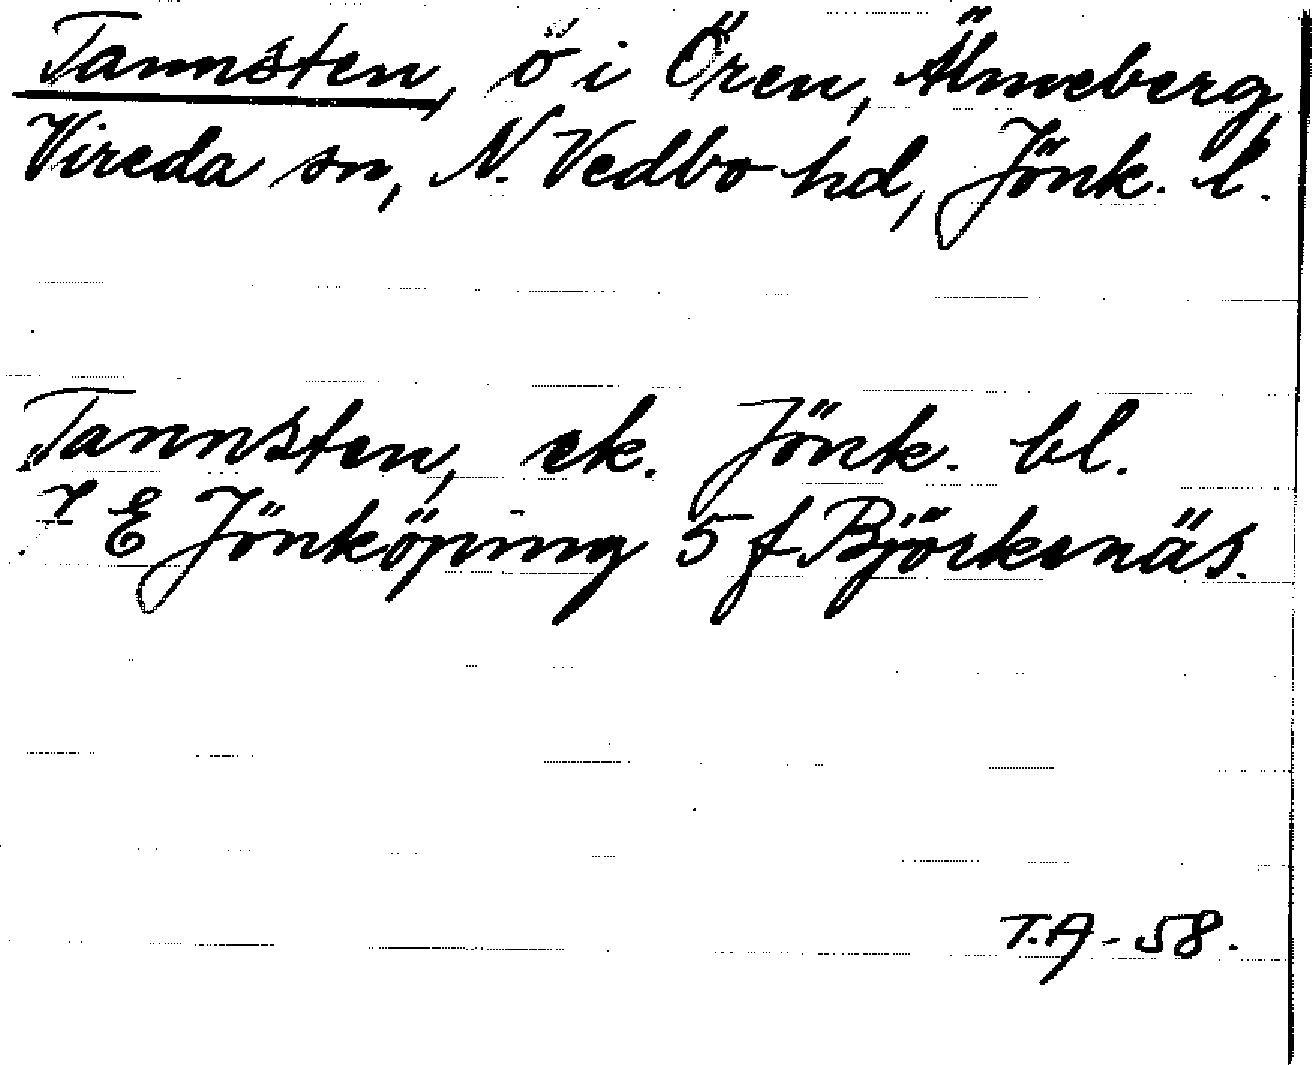 Tannsten, ö i Ören, Älmeberg,
Vireda sn, N. Vedbo hd, Jönk. l.
Tannsten, ek. Jönk. bl.
7 E Jönköping 5 f Björksnäs.
T.A - 58.